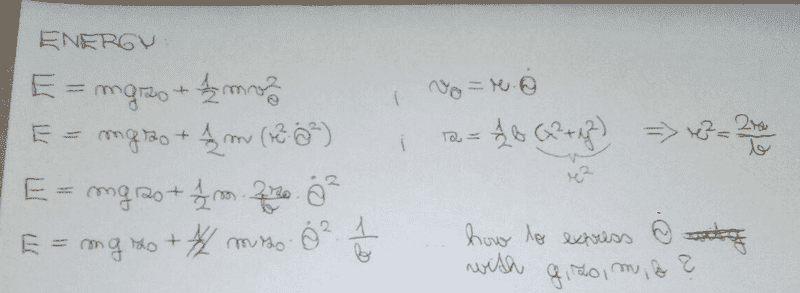 ENERGY
E = mgz₀ + 1/2 mv_θ² ; v_θ = r·θ̇
E = mgz₀ + 1/2 m (r²·θ̇²) ; z = 1/2 b (x²+y²) ⇒ r² = 2z/b
r²
E = mgz₀ + 1/2 m · 2z₀/b · θ̇²
E = mgz₀ + 1/2 · 2 mz₀ · θ̇² · 1/b how to express θ̇
with g, z₀, m, b ?